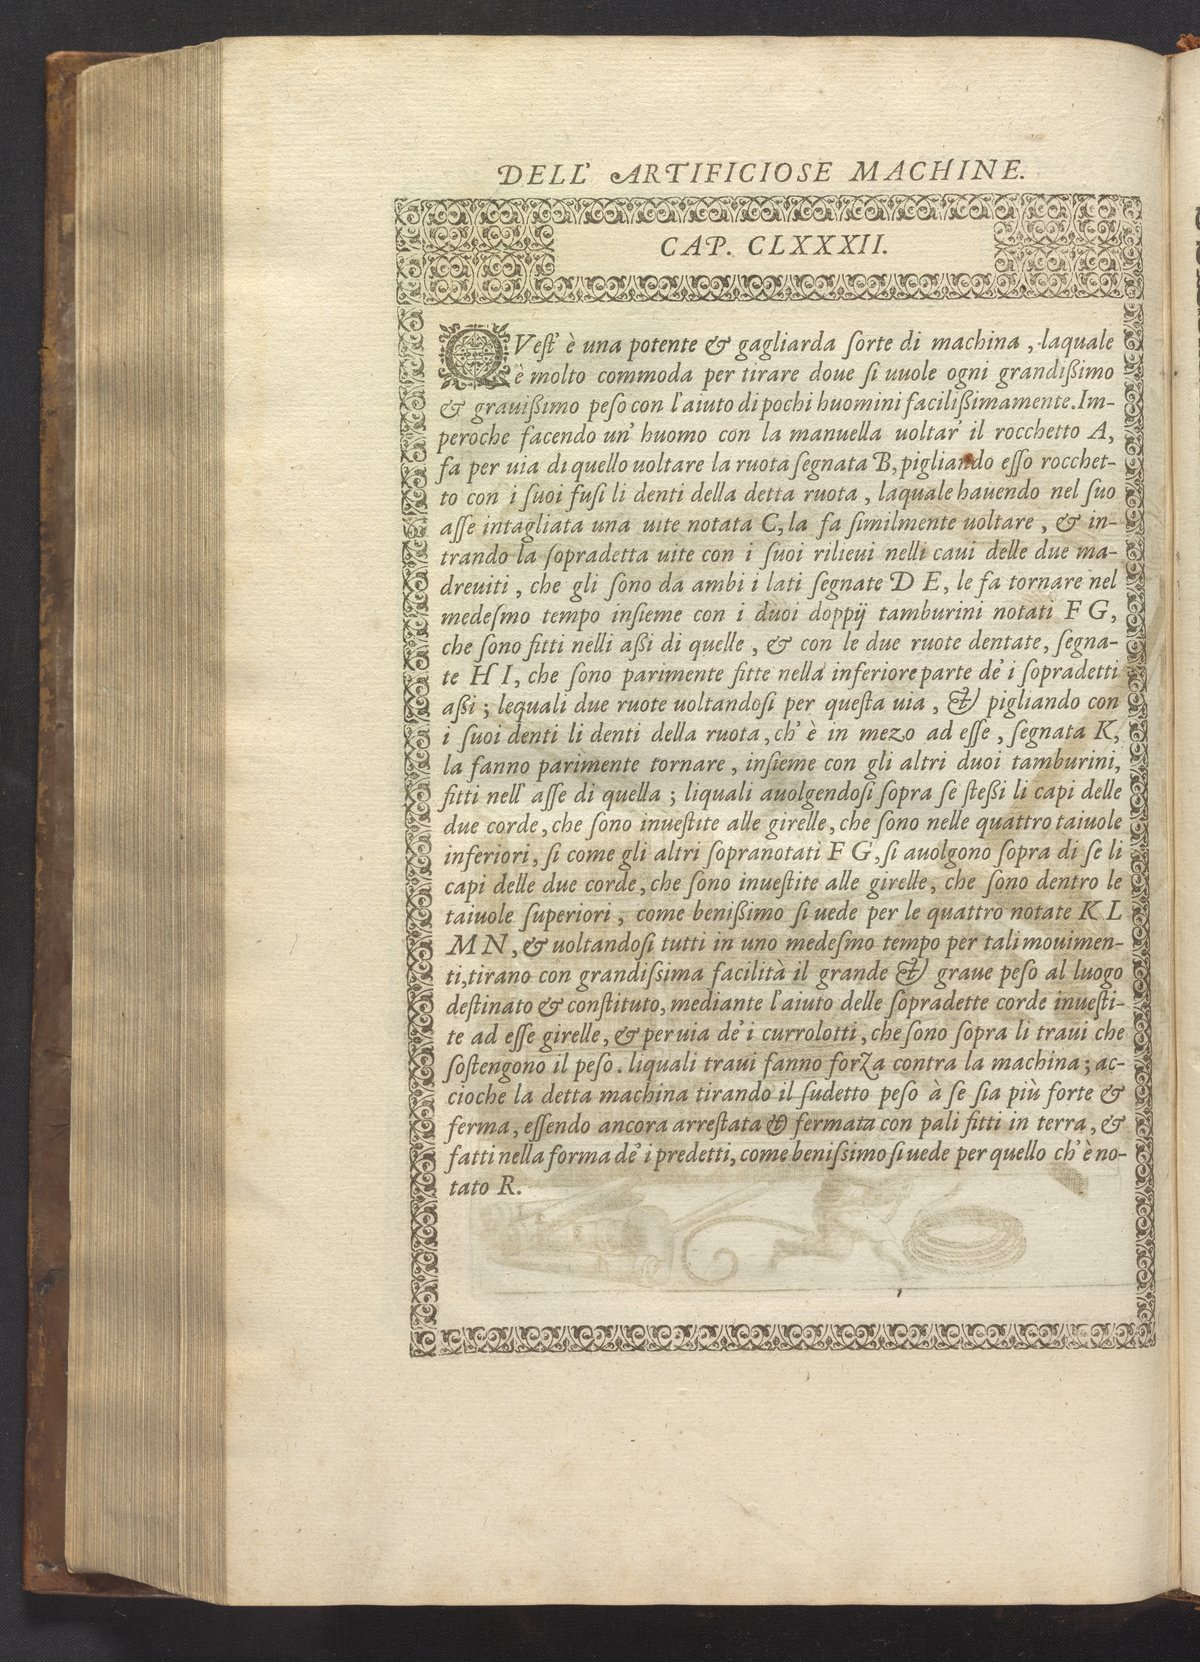 DELL' ARTIFICIOSE MACHINE.
CAP. CLXXXII.
QVest' è una potente & gagliarda sorte di machina, laquale
è molto commoda per tirare doue si uuole ogni grandißimo
& grauißimo peso con l'aiuto di pochi huomini facilißimamente. Im-
peroche facendo un' huomo con la manuella uoltar' il rocchetto A,
fa per uia di quello uoltare la ruota segnata B, pigliando esso rocchet-
to con i suoi fusi li denti della detta ruota, laquale hauendo nel suo
asse intagliata una uite notata C, la fa similmente uoltare, & in-
trando la sopradetta uite con i suoi rilieui nelli caui delle due ma-
dreuiti, che gli sono da ambi i lati segnate D E, le fa tornare nel
medesmo tempo insieme con i duoi doppij tamburini notati F G,
che sono fitti nelli aßi di quelle, & con le due ruote dentate, segna-
te H I, che sono parimente fitte nella inferiore parte de' i sopradetti
aßi; lequali due ruote uoltandosi per questa uia, & pigliando con
i suoi denti li denti della ruota, ch' è in mezo ad esse, segnata K,
la fanno parimente tornare, insieme con gli altri duoi tamburini,
fitti nell' asse di quella; liquali auolgendosi sopra se steßi li capi delle
due corde, che sono inuestite alle girelle, che sono nelle quattro taiuole
inferiori, si come gli altri sopranotati F G, si auolgono sopra di se li
capi delle due corde, che sono inuestite alle girelle, che sono dentro le
taiuole superiori, come benißimo si uede per le quattro notate K L
M N, & uoltandosi tutti in uno medesmo tempo per tali mouimen-
ti, tirano con grandissima facilità il grande & graue peso al luogo
destinato & constituto, mediante l'aiuto delle sopradette corde inuesti-
te ad esse girelle, & per uia de' i currolotti, che sono sopra li traui che
sostengono il peso. liquali traui fanno forza contra la machina; ac-
cioche la detta machina tirando il sudetto peso à se sia più forte &
ferma, essendo ancora arrestata & fermata con pali fitti in terra, &
fatti nella forma de' i predetti, come benissimo si uede per quello ch' è no-
tato R.